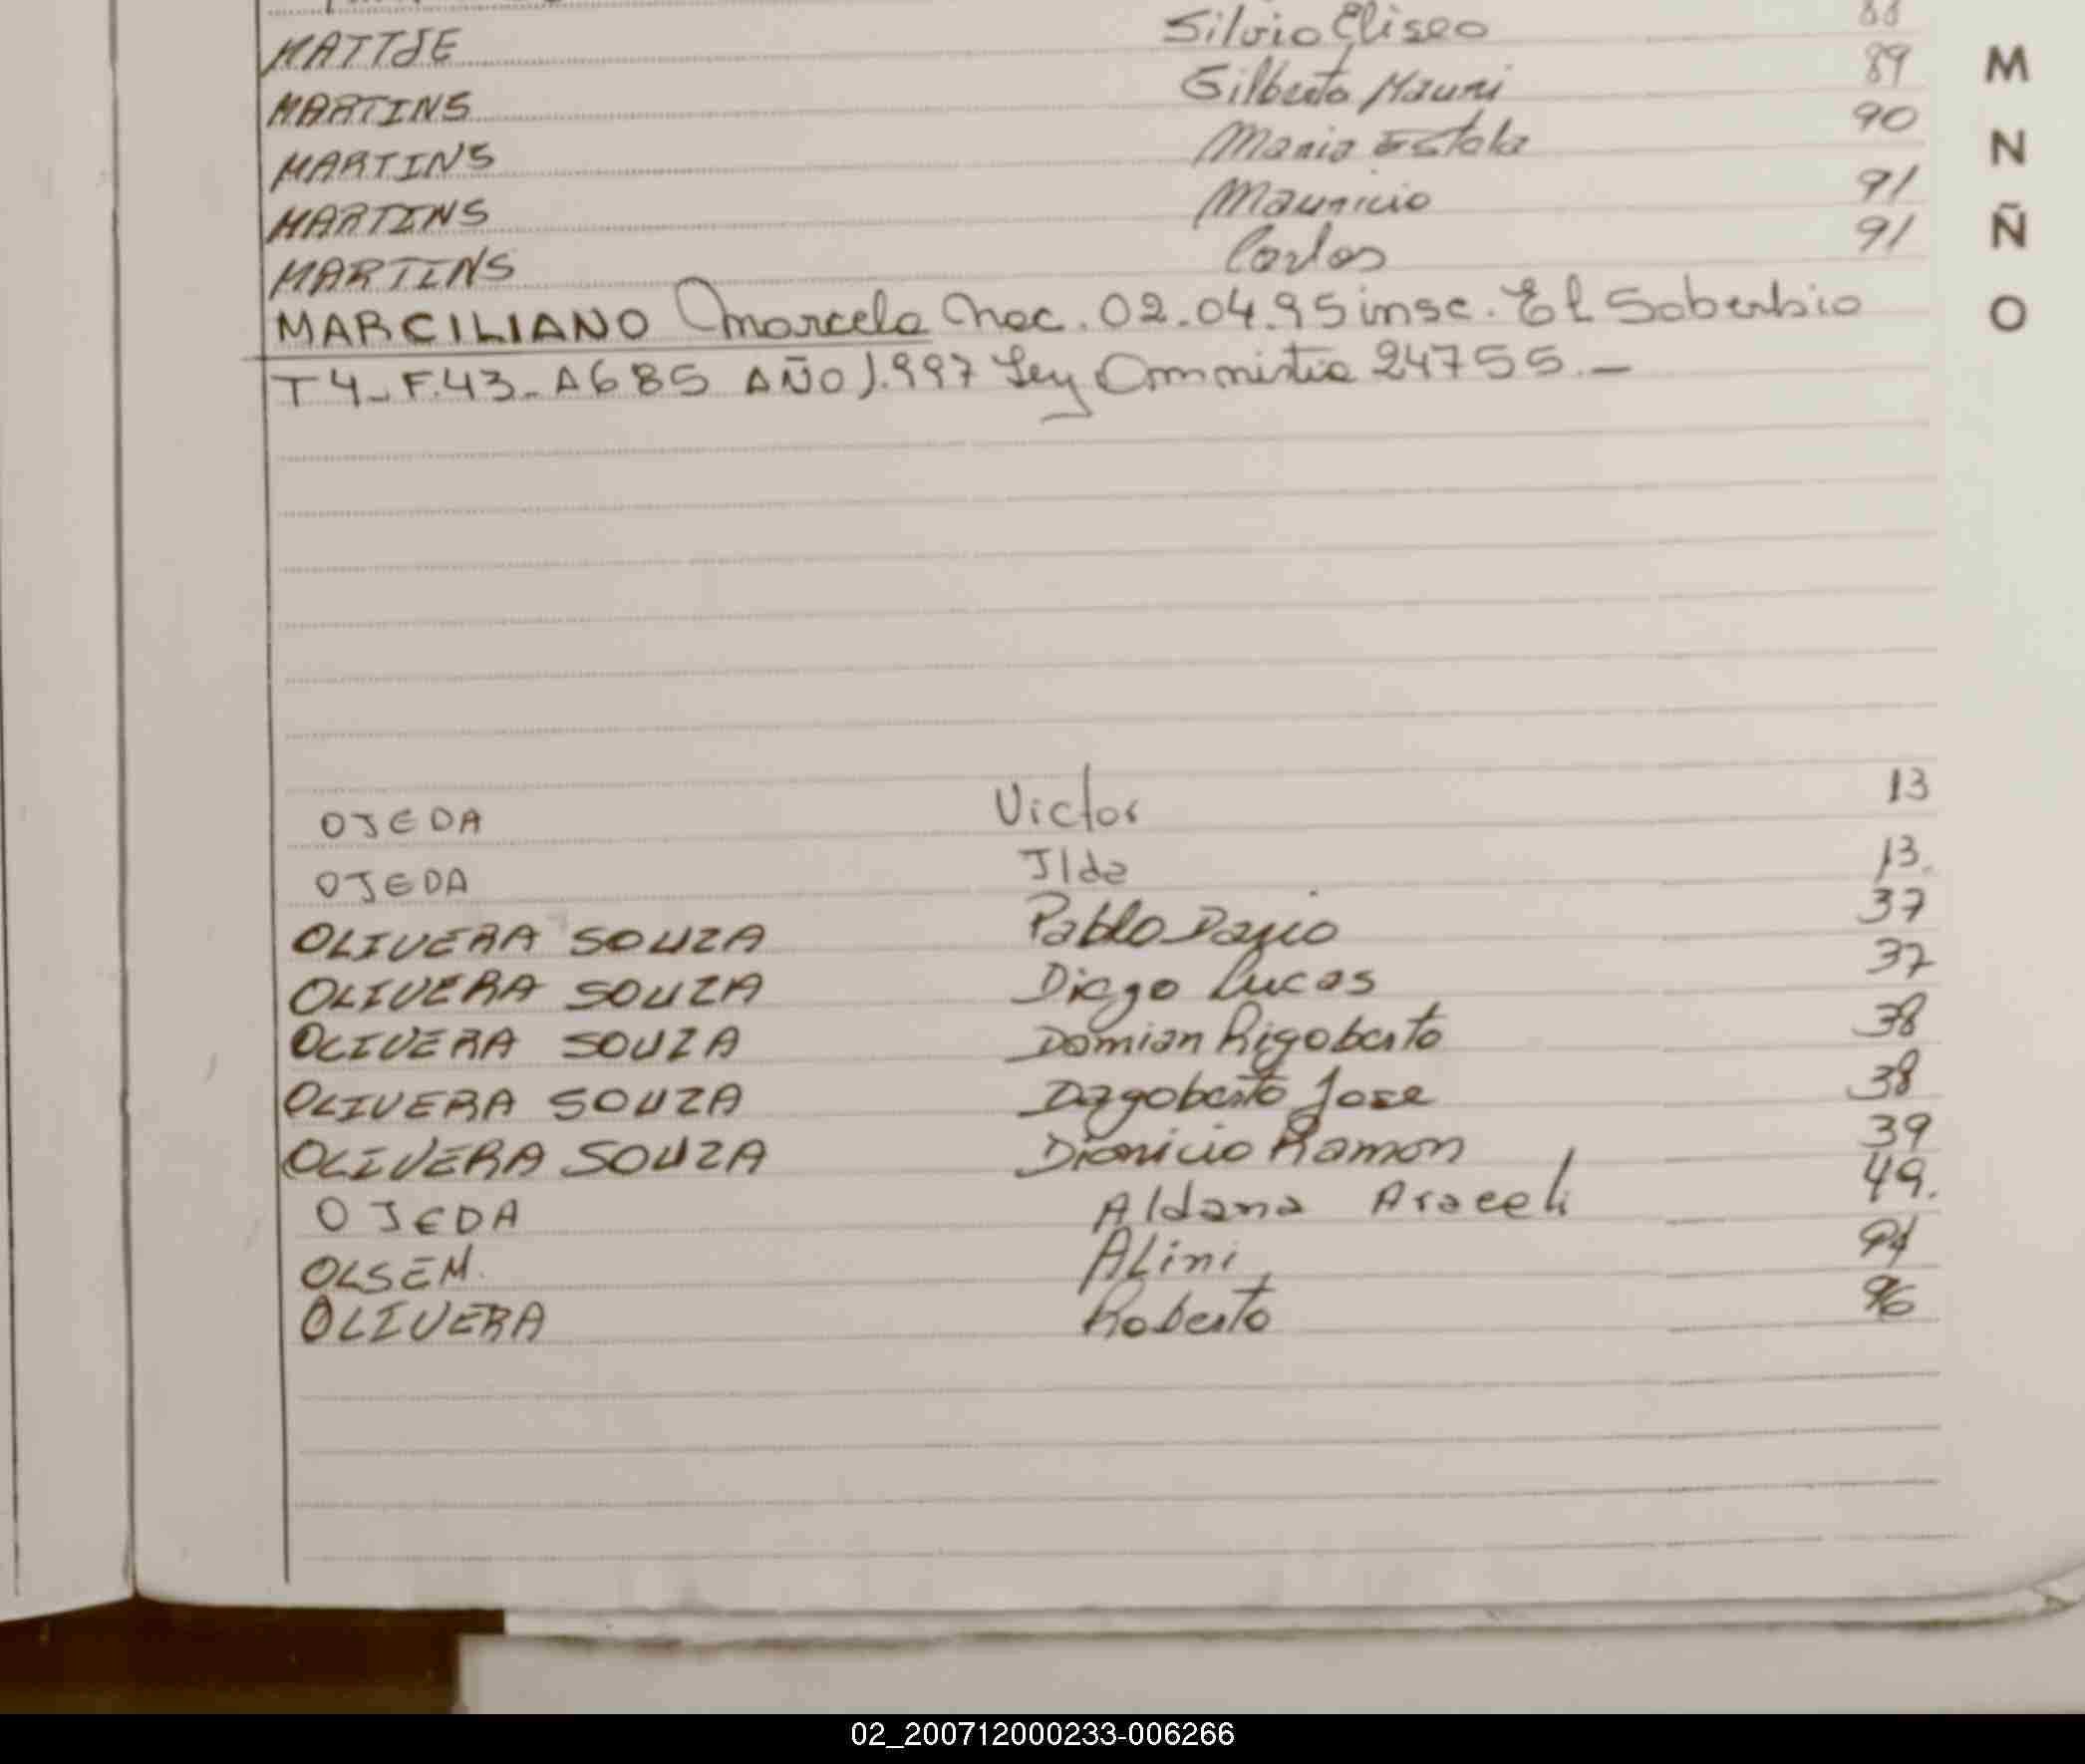 MATTJE Silvio Eliseo 88
MARTINS Gilberto Mauri 89
MARTINS Maria Estela 90
MARTINS Mauricio 91
MARTINS Carlos 91
MARCILIANO Marcela Nac. 02.04.95 insc. El Soberbio
T4_F.43_A685 AÑO 1.997 Ley Ammistia 24755._
OJEDA Victor 13
OJEDA Ilda 13.
OLIVERA SOUZA Pablo Dario 37
OLIVERA SOUZA Diego Lucas 37
OLIVERA SOUZA Damian Rigoberto 38
OLIVERA SOUZA Dagoberto Jose 38
OLIVERA SOUZA Dionicio Ramon 39
OJEDA Aldana Araceli 49.
OLSEM. ALini
OLIVERA Roberto 96
M
N
Ñ
O
02_200712000233-006266